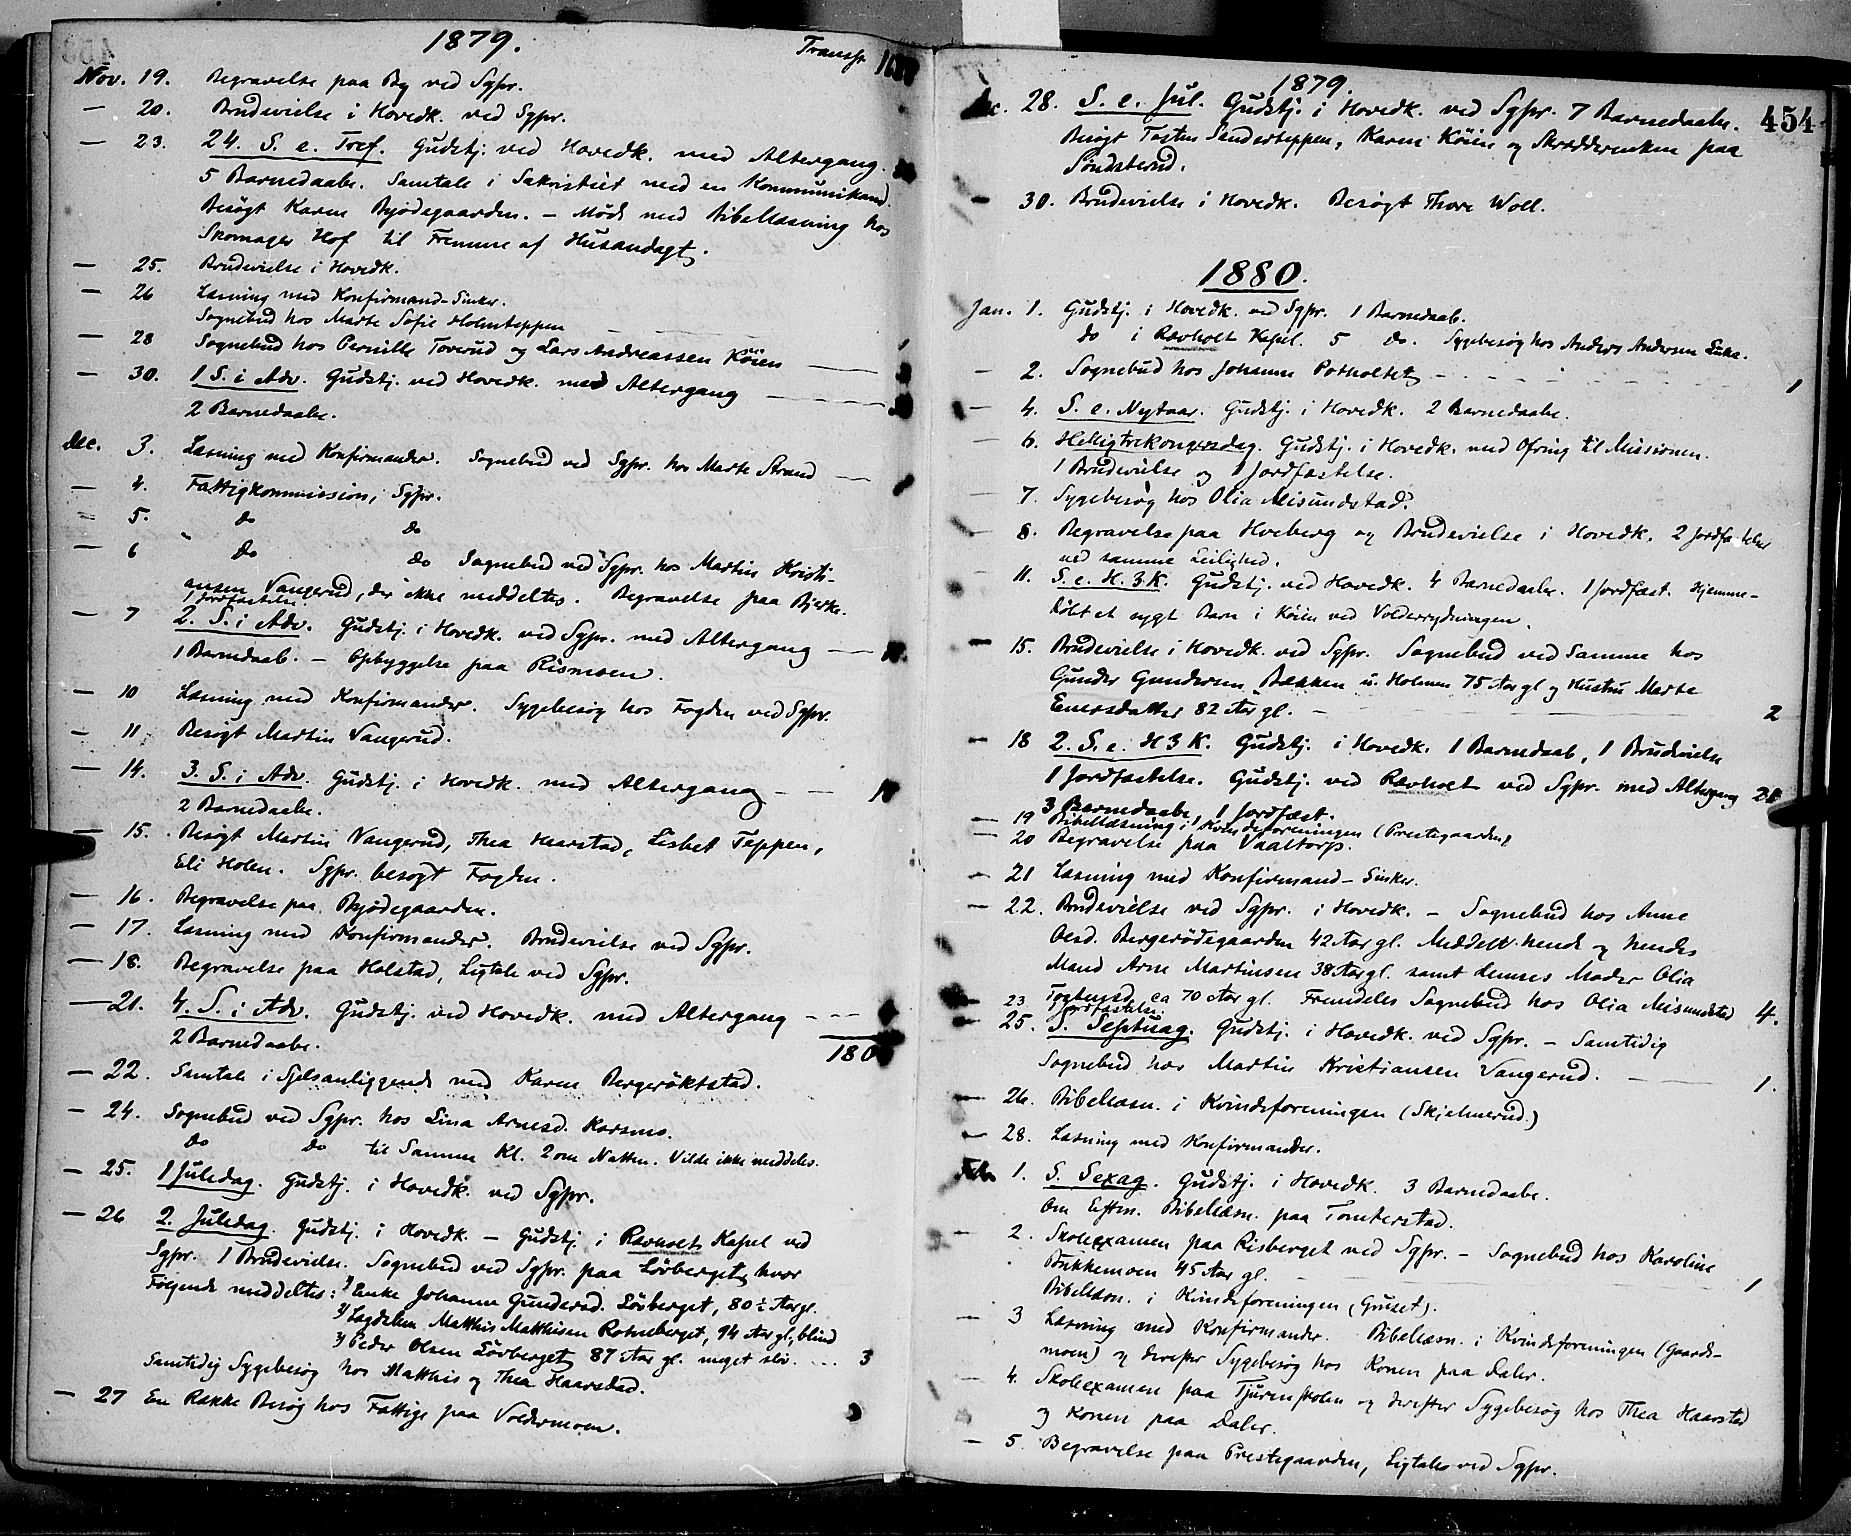 1879.
Transp.
Nov. 19. Begravelse paa By ved Sgpr.
— 20. Brudevielse i Hovedk. ved Sgpr.
— 23. 24. S. e. Tref. Gudstj. ved Hovedk. med Altergang.
5 Barnedaabe. Samtale i Sakristiet med en Kommunikand.
Besøgt Karen Bjødegaarden. — Møde med Bibellæsning hos
Skomager Hof til Fremme af Husandagt.
— 25. Brudevielse i Hovedk.
— 26 Læsning med Konfirmand-Sinker.
Sognebud hos Marte Sofie Holmteppen — — —
— 28 Sognebud hos Pernille Toverud og Lars Andreassen Köien —
— 30. 1 S. i Adv. Gudstj. ved Hovedk. med Altergang — — —
2 Barnedaabe.
Dec. 3. Læsning med Konfirmander. Sognebud ved Sgpr. hos Marte Strand —
— 4. Fattigkommission, Sgpr.
— 5. do do
— 6 do do Sognebud ved Sgpr. hos Martin Kristi-
ansen Vangerud, der ikke meddeltes. Begravelse paa Bjerke.
1 Jordfæstelse.
— 7 2. S. i Adv. Gudstj. i Hovedk. ved Sgpr. med Altergang —
1 Barnedaab. — Opbyggelse paa Rismoen.
— 10 Læsning med Konfirmander. Sygebesøg hos Fogden ved Sgpr.
— 11 Besøgt Martin Vangerud.
— 14. 3. S. i Adv. Gudstj. i Hovedk. med Altergang — —
2 Barnedaabe.
— 15. Besøgt Martin Vangerud, Thea Haarstad, Lisbet Teppen,
Eli Holen. Sgpr. besøgt Fogden.
— 16. Begravelse paa Bjødegaarden.
— 17. Læsning med Konfirmander. Brudevielse ved Sgpr.
— 18. Begravelse paa Holstad, Ligtale ved Sgpr.
— 21. 4. S. i Adv. Gudstj. ved Hovedk. med Altergang - - -
2 Barnedaabe.
— 22. Samtale i Sjelsanliggende med Karen Bergeröktstad.
— 24. Sognebud ved Sgpr. hos Lina Arnesd. Karsmo.
do do til Samme Kl. 2 om Natten. Vilde ikke meddeles.
— 25. 1 Juledag. Gudstj. i Hovedk. ved Sgpr.
— 26 2. Juledag. Gudstj. i Hovedk. — Gudstj. i Ravholt Kapel ved
Sgpr. 1 Brudevielse. Sognebud ved Sgpr. paa Lövberget, hvor
Følgende meddeltes: 1) Enke Johanne Gundersd. Lövberget, 80½ Aar gl.
2) Lægdslem Matthis Matthisen Rotneberget, 94 Aar gl., blind
3) Peder Olsen Lövberget 87 Aar gl. meget sløv. ... 3
Samtidig Sygebesøg hos Matthis og Thea Haarstad.
— 27 En Række Besøg hos Fattige paa Voldermoen.
1879.
454
28. S. e. Jul. Gudstj. i Hovedk. ved Sgpr. 7 Barnedaabe.
Besøgt Tosten Senderteppen, Karen Köien og Skrædderenken paa
Söndsterud.
— 30. Brudevielse i Hovedk. Besøgt Thore Woll.
1880.
Jan. 1. Gudstj. i Hovedk. ved Sgpr. 1 Barnedaab.
do i Ravholt Kapel. 5 do. Sygebesøg hos Anders Andersen
— 2. Sognebud hos Johanne Potholtet — 1
4. S. e. Nytaar. Gudstj. i Hovedk. 2 Barnedaabe.
— 6. Helligtrekongersdag. Gudstj. i Hovedk. med Ofring til Missionen.
1 Brudevielse og 1 Jordfæstelse.
— 7. Sygebesøg hos Olia Misundstad.
8. Begravelse paa Hoeberg og Brudevielse i Hovedk. 2 Jordfæstelser
ved samme Leilighed.
11. S. e. H. 3 K. Gudstj. ved Hovedk. 4 Barnedaabe. 1 Jordfæst. Hjemme-
døbt et sygt Barn i Köien ved Volderrydningen.
— 15. Brudevielse i Hovedk. ved Sgpr. Sognebud ved Samme hos
Gunder Gundersen Bækken u. Holmen 75 Aar gl og Hustru Marte
Enersdatter 82 Aar gl. — 2
— 18 2. S. e. H 3 K. Gudstj. i Hovedk. 1 Barnedaab, 1 Brudevielse
1 Jordfæstelse. Gudstj. ved Ravholt ved Sgpr. med Altergang 21
3 Barnedaabe, 1 Jordfæst.
— 19 Bibellæsning i Kvindeforeningen (Prestegaarden)
— 20 Begravelse paa Vaaltorp.
— 21 Læsning med Konfirmand-Sinker.
— 22. Brudevielse ved Sgpr. i Hovedk. — Sognebud hos Anne
Olesd. Bergerödegaarden 42 Aar gl. Meddelt hende og hendes
Mand Arne Martinsen 38 Aar gl. samt dennes Moder Olia
ca 70 Aar gl. Fremdeles Sognebud hos Olia Misundstad 4.
— 23. 1 Jordfæstelse.
25. S. Septuag. Gudstj. i Hovedk. ved Sgpr. — Samtidig
Sognebud hos Martin Kristiansen Vangerud. — 1.
— 26. Bibellæsn. i Kvindeforeningen (Skjelnerud.)
— 28. Læsning med Konfirmander.
Feb. 1. S. Sexag. Gudstj. i Hovedk. 3 Barnedaabe.
Om Eftm. Bibellæsn. paa Tomterstad.
— 2. Skoleexamen paa Risberget ved Sgpr. — Sognebud hos Karoline
Bükkemoen 45 Aar gl. — 1
Bibellæsn. i Kvindeforeningen (Gruset).
— 3 Læsning med Konfirmander. Bibellæsn. i Kvindeforeningen (Gaards-
moen) og derefter Sygebesøg hos Konen paa Daler.
— 4. Skoleexamen paa Tjürenskolen og derefter Sygebesøg hos Thea Haarstad
og Konen paa Daler.
— 5. Begravelse paa Prestegaarden, Ligtale ved Sgpr.